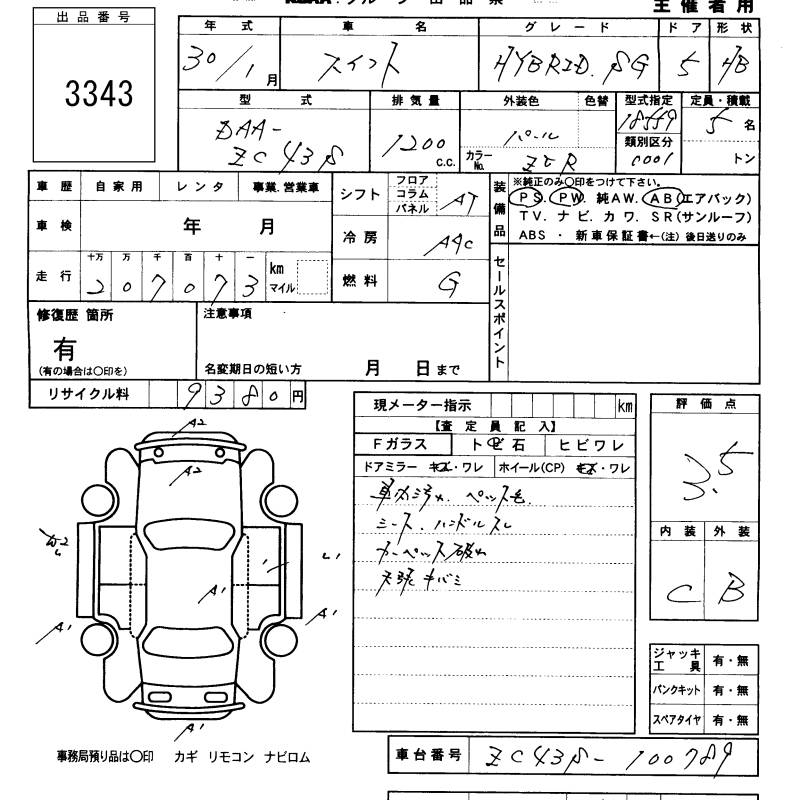 主催者用
出品番号
3343
年式 車名 グレード ドア 形状
30/1月 スイフト HYBRID.SG 5 HB
型式 排気量 外装色 色替 型式指定 定員・積載
DAA-ZC43S 1200 C.C. パール 18559 5名
カラーNo. ZVR 類別区分 0001 トン
車歴 自家用 レンタ 事業.営業車
車検 年 月
走行 十万 万 千 百 十 一
207073 km マイル
シフト フロア コラム パネル AT
冷房 AAC
燃料 G
装備品 ※純正のみ〇印をつけて下さい。
PS. PW. 純AW. AB(エアバック)
TV. ナビ. カワ. SR(サンルーフ)
ABS ・ 新車保証書←(注) 後日送りのみ
セールスポイント
修復歴 箇所
有
(有の場合は〇印を)
注意事項
名変期日の短い方 月 日まで
リサイクル料 9380円
現メーター指示 km
【査定員記入】
Fガラス トビ石 ヒビワレ
ドアミラー キズ・ワレ ホイール(CP) キズ・ワレ
車内汚れ. ペット毛.
シート. ハンドルスレ
カーペット破れ
天張キバミ
評価点
3.5
内装 外装
C B
A2
A2
W2
A1
A1
A1
A1
ジャッキ工具 有・無
パンクキット 有・無
スペアタイヤ 有・無
事務局預り品は〇印 カギ リモコン ナビロム
車台番号 ZC43S-100789